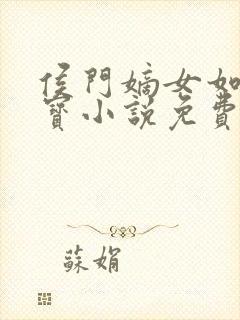 侯門嫡女如
寶小說免費
蘇娟